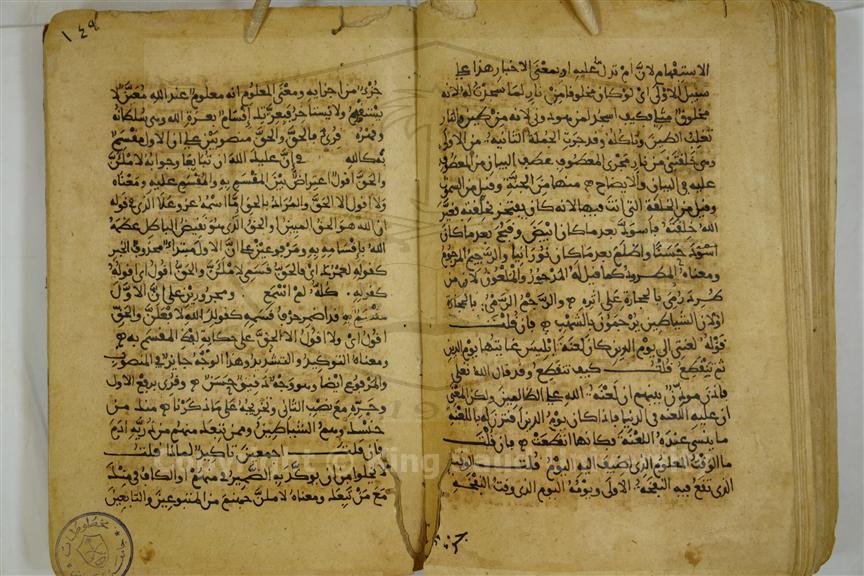 الاستفهام لان ام تدل عليه او بمعنى الاخبار هذا على
سبيل الاولى اي لو كان مخلوقا من نار لما سجدت له لانه
مخلوق مثلي فكيف اسجد لمن هو دوني لانه من طين والنار
تغلب الطين وتاكله وقد جرت الجملة الثانية من الاولى
وهي خلقتني من نار مجرى المعطوف عطف البيان من المعطوف
عليه في البيان والايضاح منها من الجنة وقيل من السموات
وقيل من الخلقة التي انت فيها لانه كان يفتخر بخلقته فغير
الله خلقته فاسود بعد ما كان ابيض وقبح بعد ما كان
حسنا واظلم بعد ما كان نورانيا والرجيم المرجوم
ومعناه المطرود كما قيل له المدحور والملعون لان من
طرد رمي بالحجارة على اثره والرجم الرمي بالحجارة
او لان الشياطين يرجمون بالشهب فان قلت
قوله لعنتي الى يوم الدين كان لعنة ابليس غايتها يوم الدين
ثم تنقطع قلت كيف تنقطع وقد قال الله تعلى
فاذن موذن بينهم ان لعنة الله على الظالمين ولكن المعنى
ان عليه اللعنة في الدنيا فاذا كان يوم الدين اقترن له باللعنة
ما ينسى عنده اللعنة فكانها انقطعت فان قلت
ما الوقت المعلوم الذي اضيف اليه اليوم قلت الوقت
الذي تقع فيه النفخة الاولى ويومه اليوم الذي وقت النفخة
جزء
١٤٩
جزء من اجزايه ومعنى المعلوم انه معلوم عند الله معين لا
يستقدم ولا يستاخر فبعزتك اقسام بعزة الله وهي سلطانه
وقهره قرئ فالحق والحق منصوبين على ان الاول مقسم
به كالله في ان عليك الله ان تبايعا وجوابه لاملئن
والحق اقول اعتراض بين المقسم به والمقسم عليه ومعناه
ولا اقول الا الحق والمراد بالحق اما اسمه عز وعلا الذي في قوله
ان الله هو الحق المبين او الحق الذي هو نقيض الباطل عظمه
الله باقسامه به ومرفوعين على ان الاول مبتدا محذوف الخبر
كقوله لعمرك اي فالحق قسمي لاملئن والحق اقول اي اقوله
كقوله كله لم اصنع ومجرورين على ان الاول
مقسم به قد اضمر حرف قسمه كقولك الله لافعلن والحق
اقول اي ولا اقول الا الحق على حكاية لفظ المقسم به
ومعناه التوكيد والتشديد وهذا الوجه جايز في المنصوب
والمرفوع ايضا وهو وجه دقيق حسن وقرئ برفع الاول
وجره مع نصب الثاني وتخريجه على ما ذكرنا منك من
جنسك وهم الشياطين وممن تبعك منهم من ذرية ادم
فان قلت اجمعين تاكيد لماذا قلت
لا يخلوا من ان يوكد به الضمير في منهم او الكاف في منك
مع من تبعك ومعناه لاملئن جهنم من المتبوعين والتابعين
Copyright © King Saud University